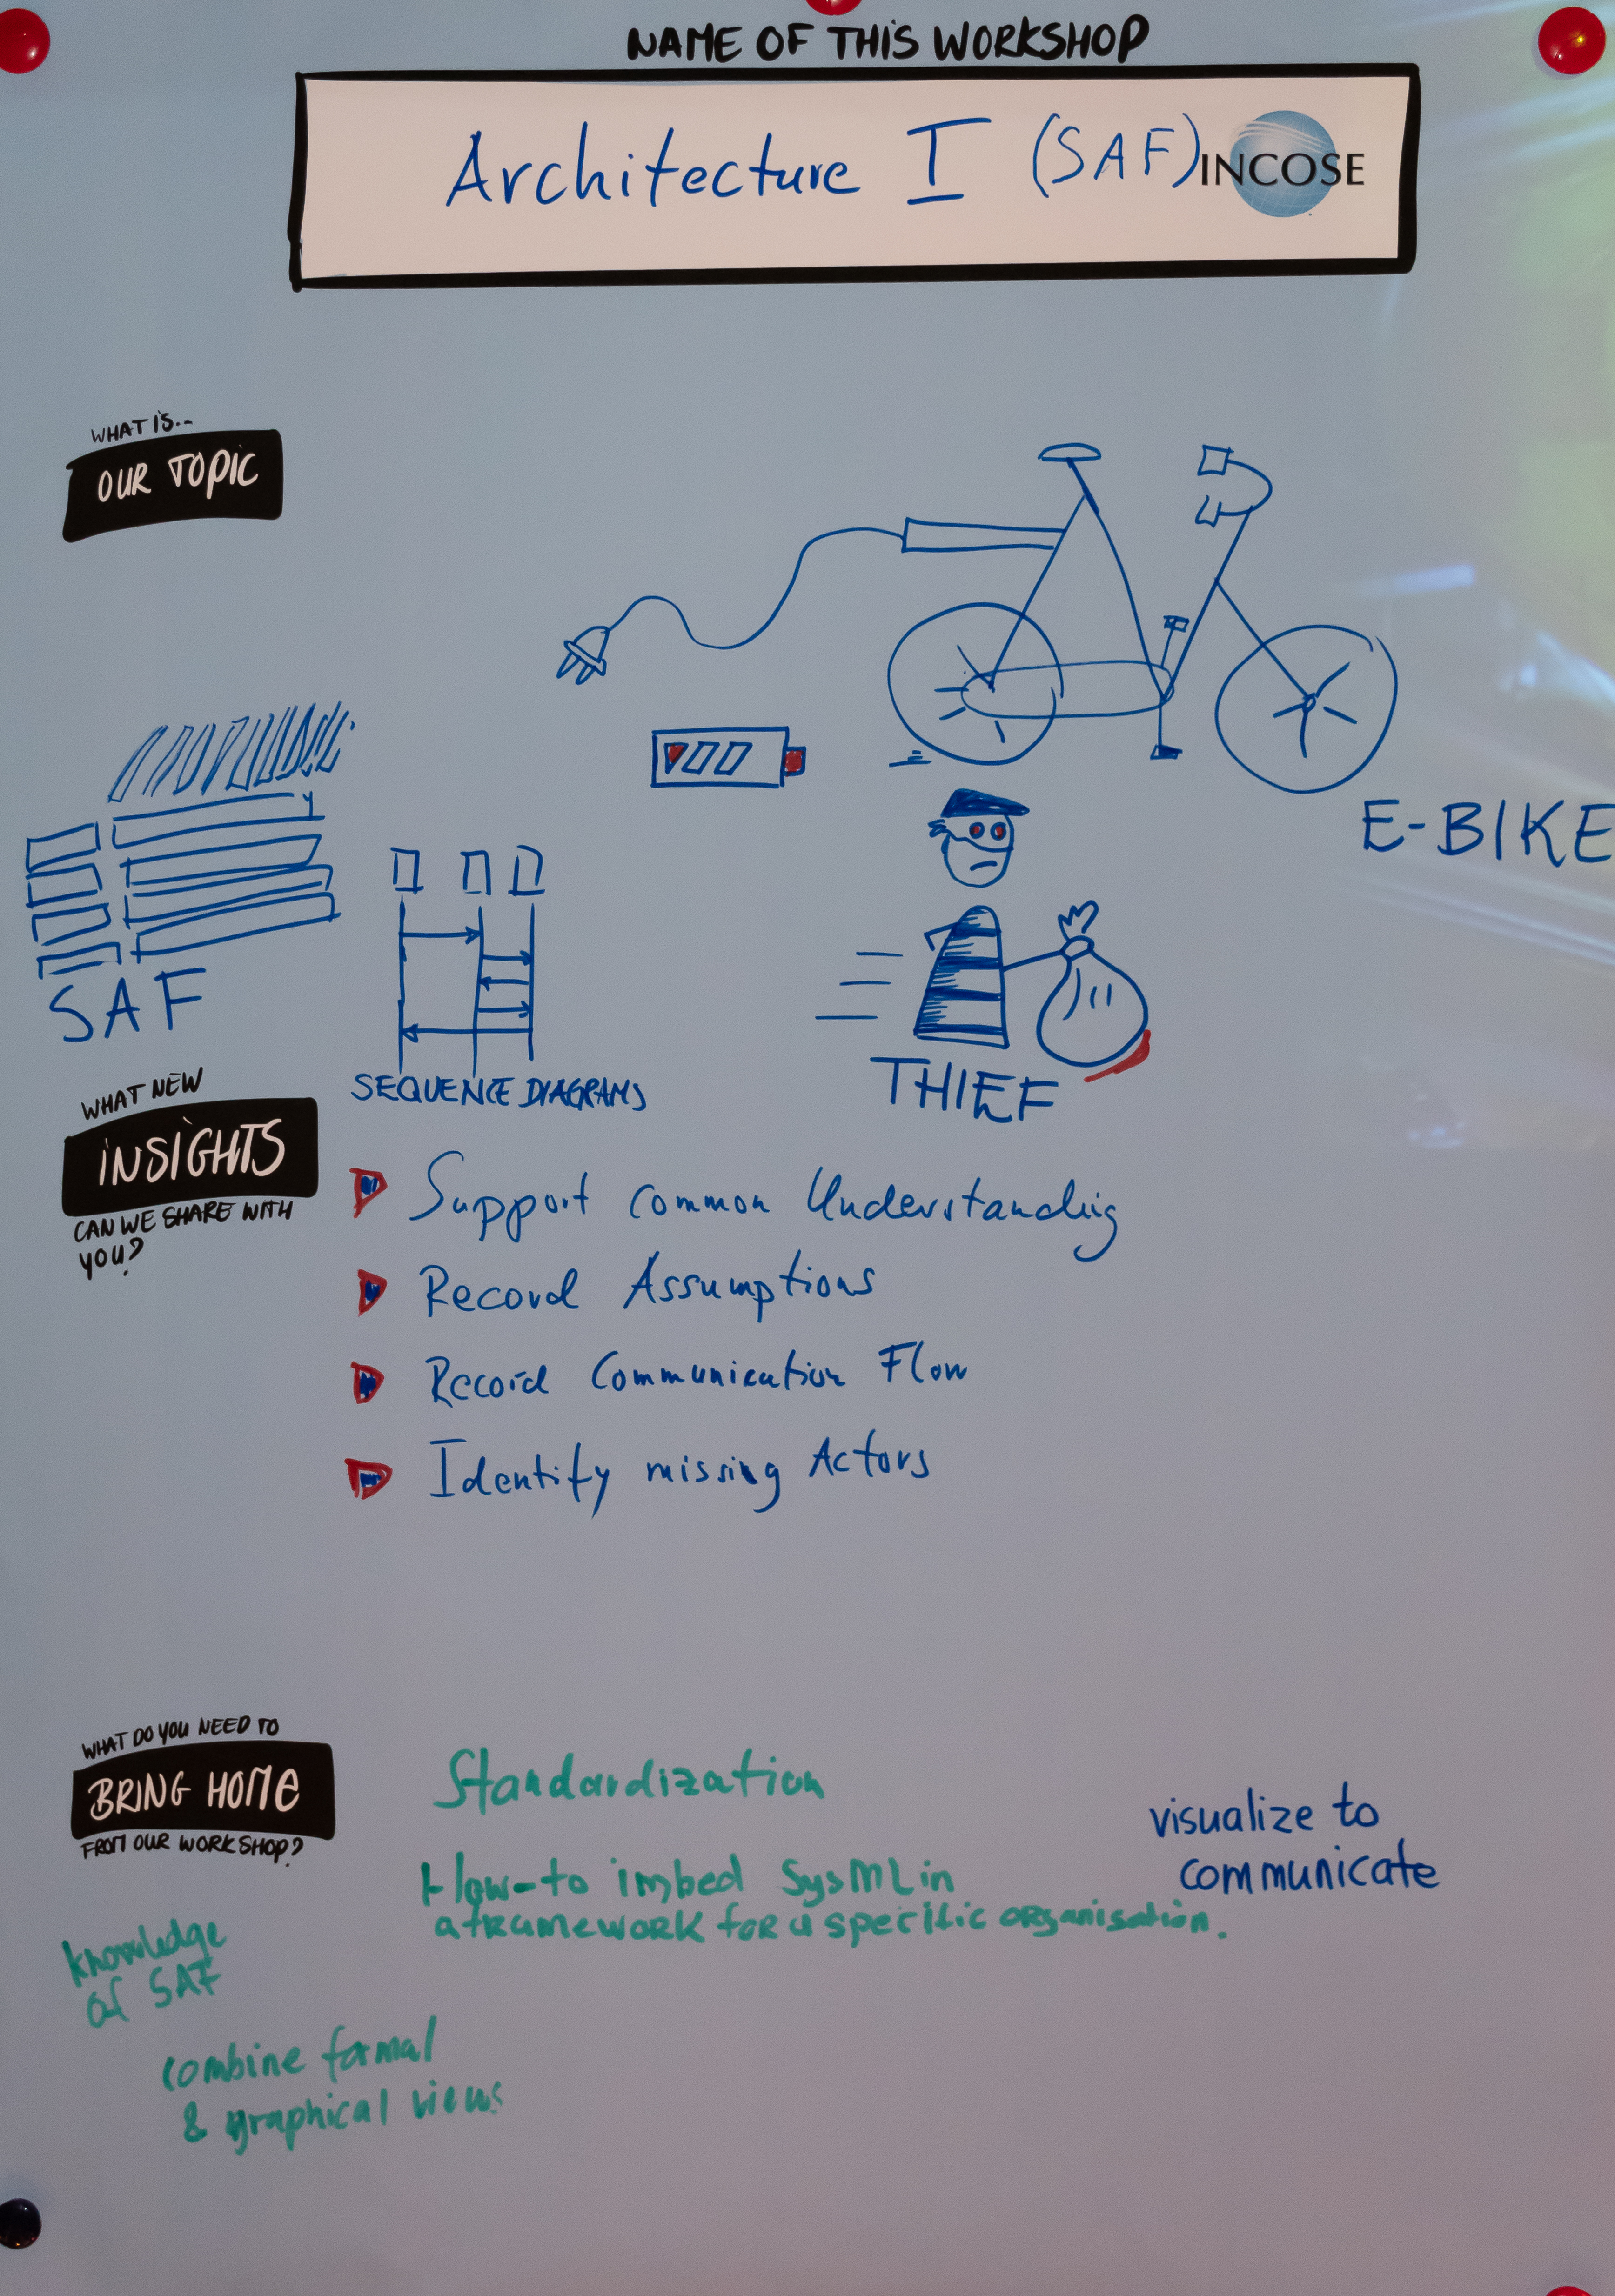 NAME OF THIS WORKSHOP
Architecture I (SAF)
INCOSE
WHAT IS..
OUR TOPIC
E-BIKE
SAF
SEQUENCE DIAGRAMS
THIEF
WHAT NEW
INSIGHTS
CAN WE SHARE WITH
YOU?
Support common Understanding
Record Assumptions
Record Communication Flow
Identify missing Actors
WHAT DO YOU NEED TO
BRING HOME
FROM OUR WORKSHOP?
Standardization
visualize to
communicate
How-to imbed SysML in
a framework for a specific organisation.
knowledge
of SAF
combine formal
& graphical views